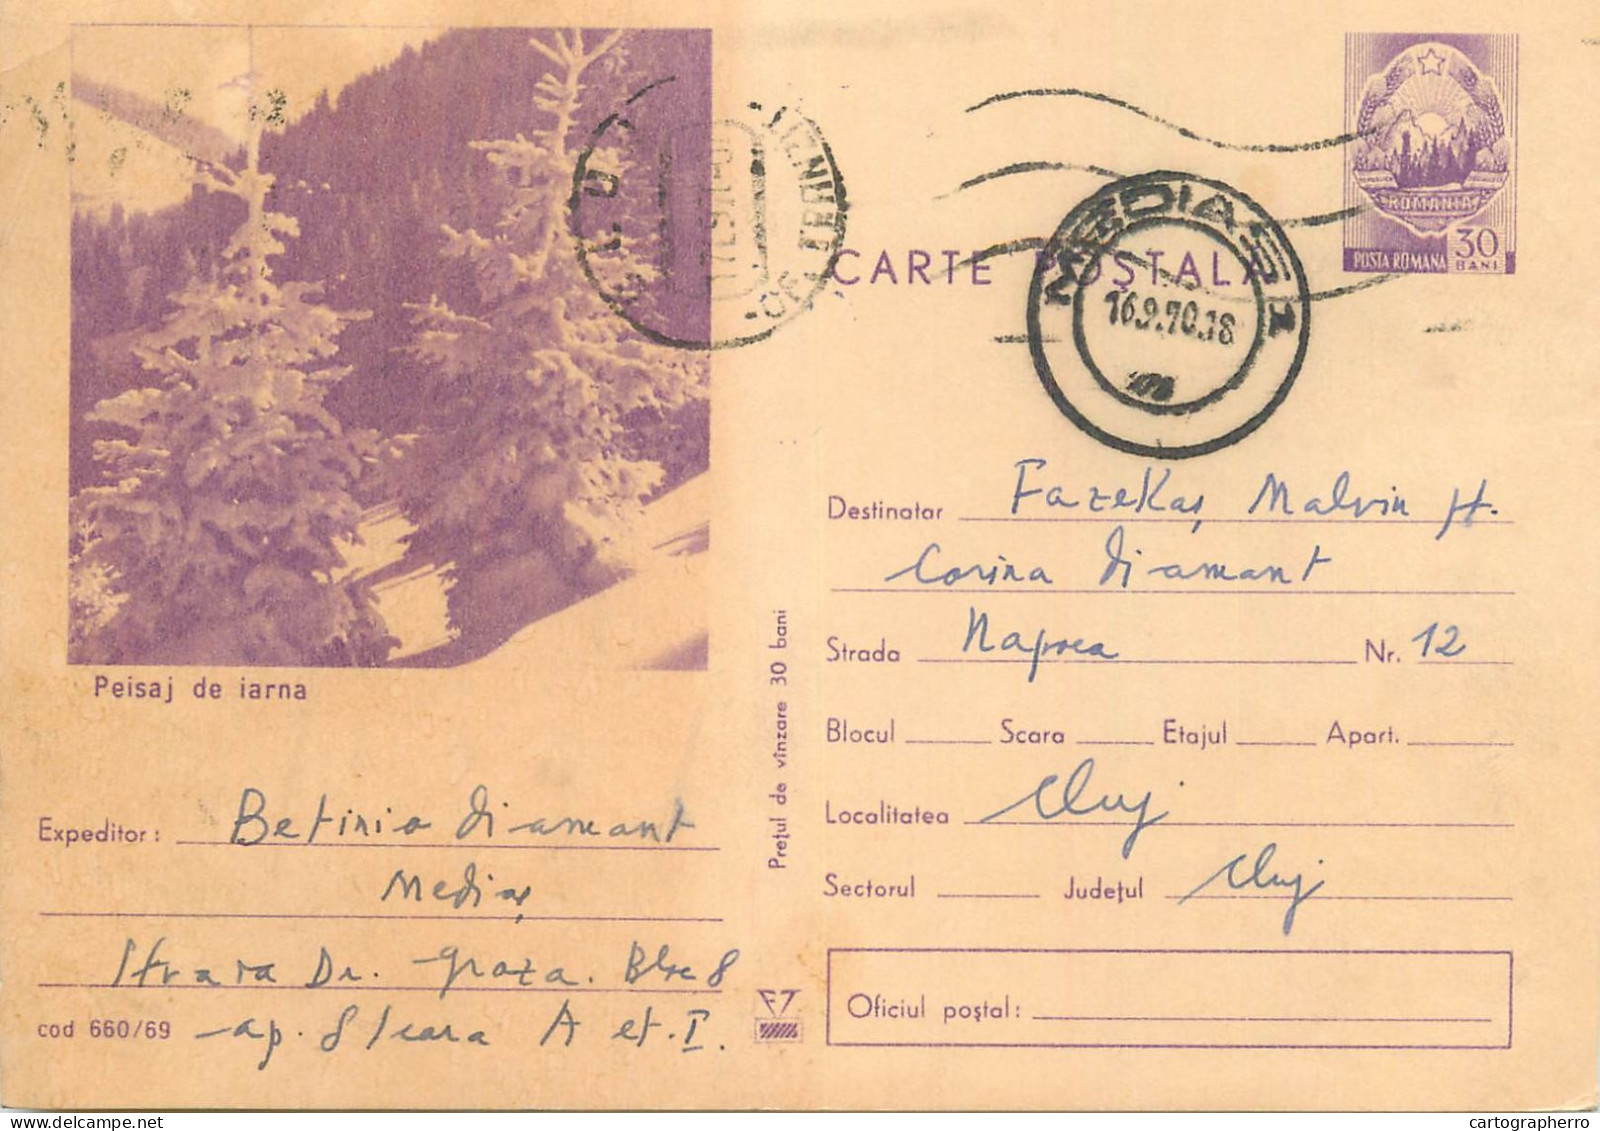 ROMANIA
POSTA ROMANA
30
BANI
CARTE POȘTALĂ
MEDIAȘ 1
16.9.70.18
CLUJ
Peisaj de iarna
Destinatar Fazekaș Malvin H.
Corina Diamant
Strada Napoca Nr. 12
Blocul Scara Etajul Apart.
Localitatea Cluj
Sectorul Județul Cluj
Oficiul poștal:
Prețul de vînzare 30 bani
Expeditor: Betinia Diamant
Mediaș
Strada Dr. Groza. Bloc 8
cod 660/69 ap. 8 scara A et. I.
cartographerro
www.delcampe.net